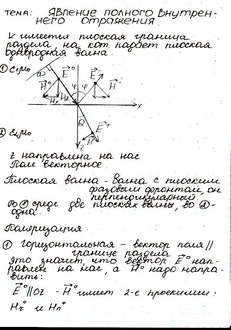 ТЕМА: ЯВЛЕНИЕ ПОЛНОГО ВНУТРЕН-
НЕГО ОТРАЖЕНИЯ.
плоская граница
раздела на кот. падает плоская
однородная волна
① ε₁μ₀
E
H
E
H
φ
φ
x
② ε₂μ₀
E
H
z направлена на нас
Поле векторное
Плоская волна - волна с плоским
фазовым фронтом, он
перпендикулярный
среде две плоских волны, во ②-
одна
Поляризация:
① Горизонтальная - вектор поля //
границе раздела
это значит, что вектор E нап-
равлен на нас, а H надо напра-
вить:
E //OZ - H имеет 2-е проекции:
Hτ и Hn